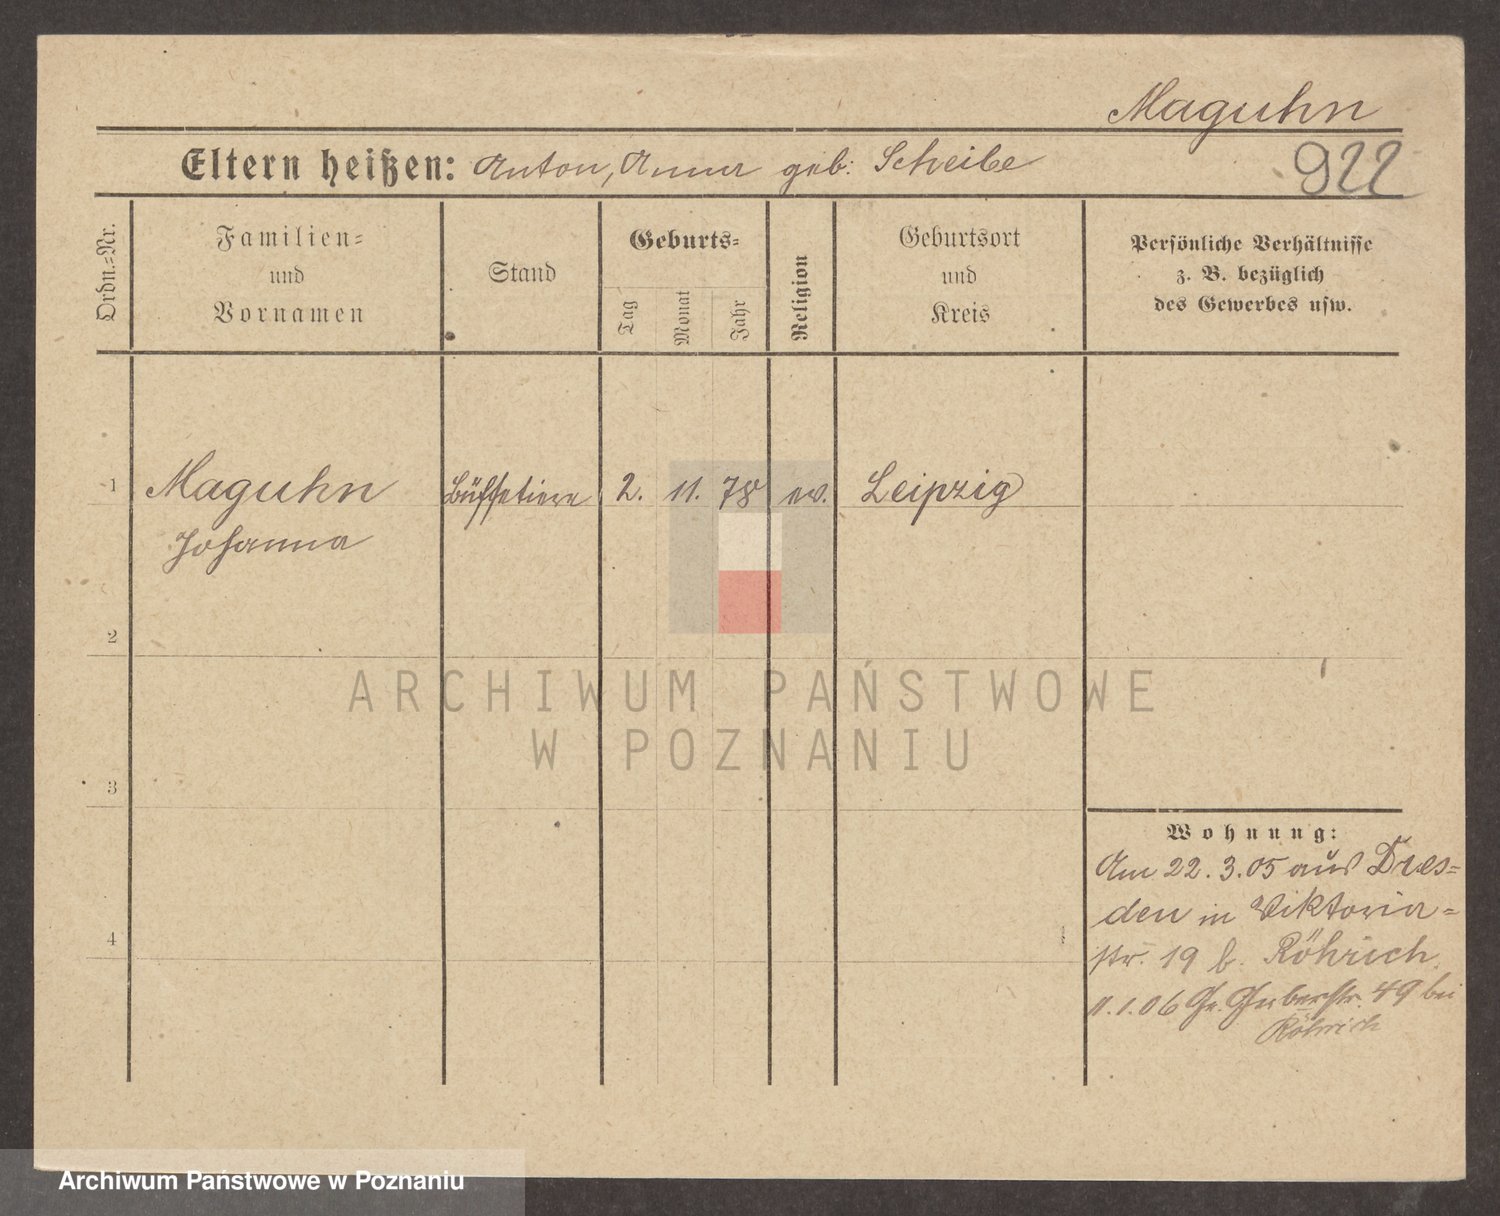 Maguhn
Eltern heißen: Anton, Anna geb: Scheibe
922
Ordn.-Nr.
Familien-
und
Vornamen
Stand
Geburts-
Tag
Monat
Jahr
Religion
Geburtsort
und
Kreis
Persönliche Verhältnisse
z. B. bezüglich
des Gewerbes usw.
1
Maguhn
Johanna
Büffetiere
2.
11.
78
ev.
Leipzig
2
3
4
Wohnung:
Am 22.3.05 aus Dres-
den in Viktoria-
str. 19 b. Röhrich
11.1.06 Gr. Gerberstr. 49 bei
Röhrich
ARCHIWUM PAŃSTWOWE
W POZNANIU
Archiwum Państwowe w Poznaniu